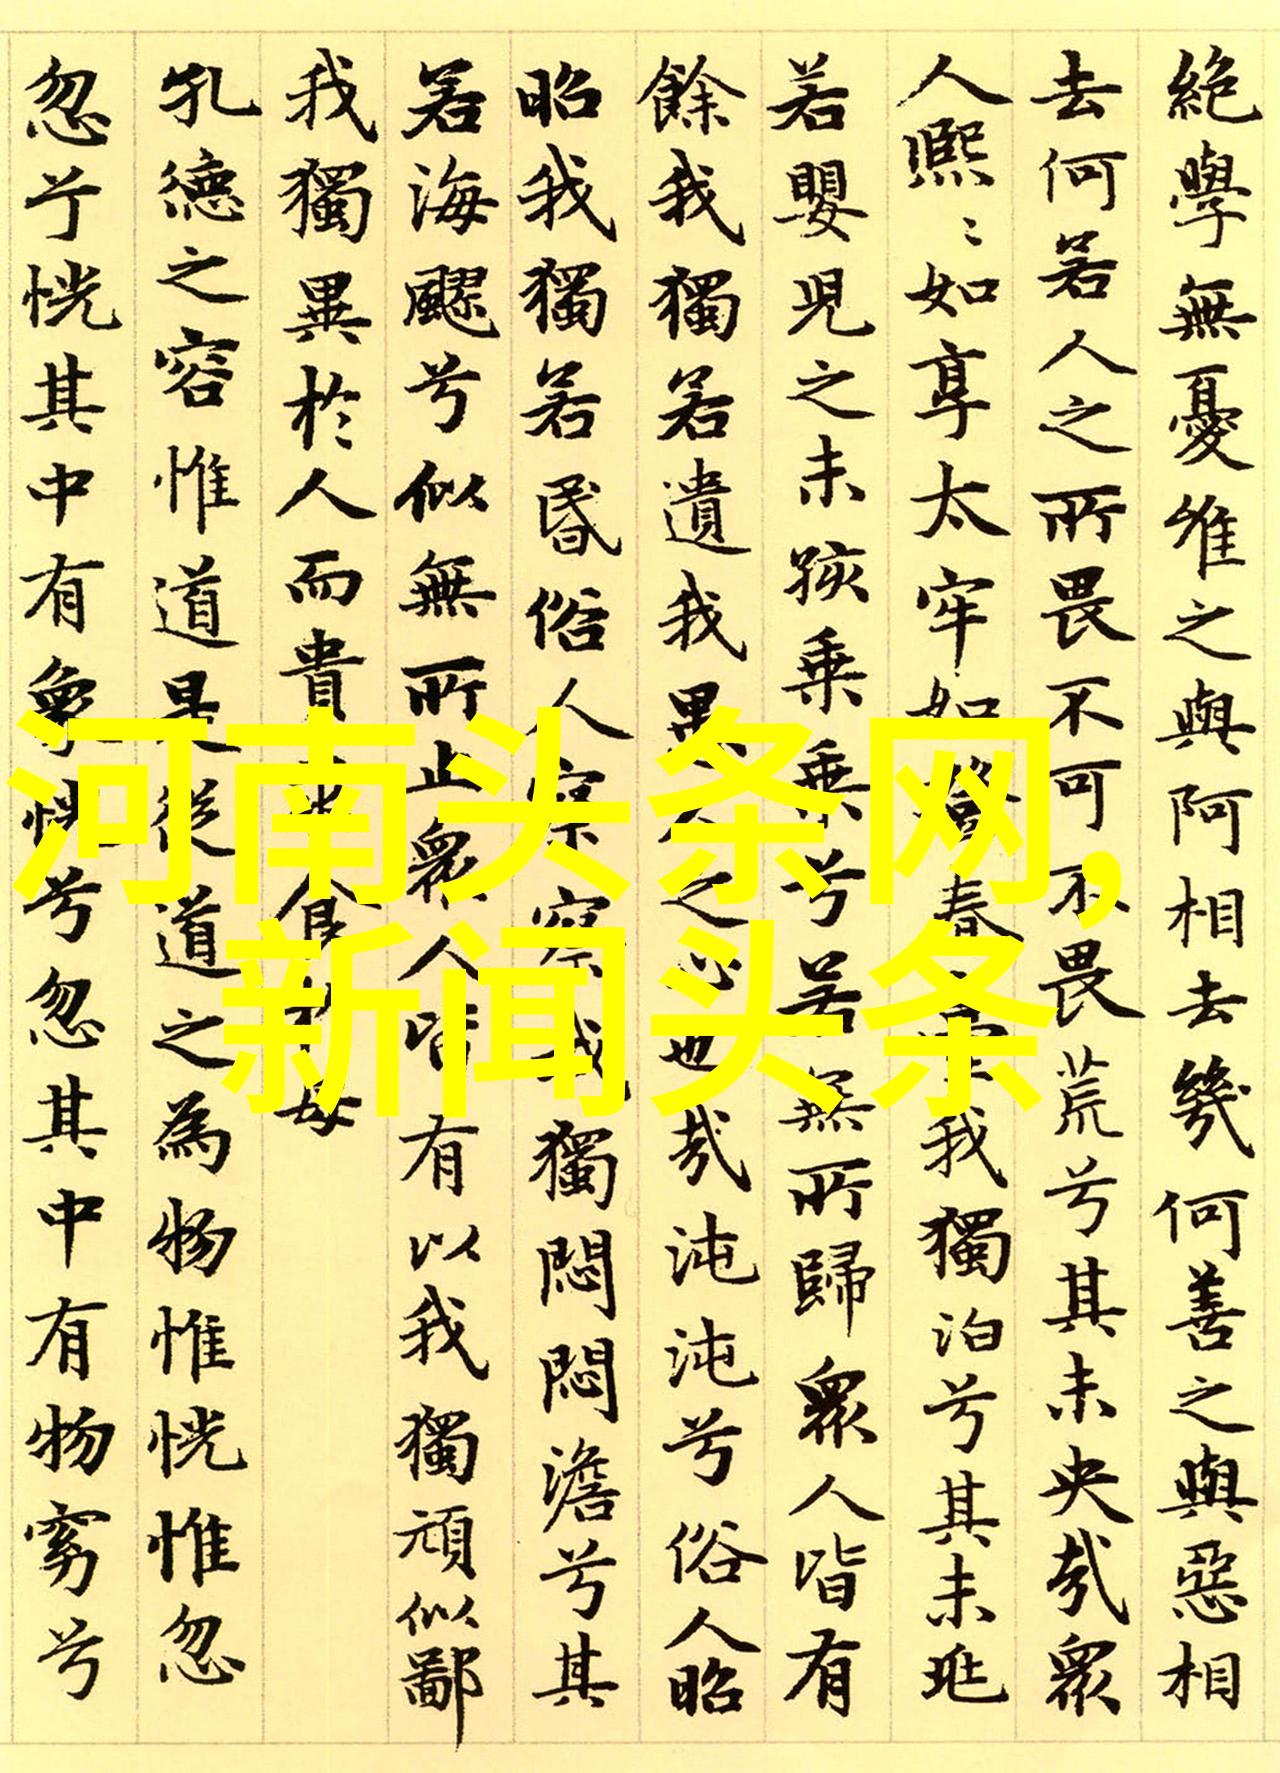 絶學無憂唯之與阿相去幾何善之與惡相
去何若人之所畏不可不畏荒兮其未央哉眾
人熙〻如享太牢如登春臺我獨泊兮其未兆
若嬰兒之未孩乗乗兮若無所歸眾人皆有
餘我獨若遺我愚人之心也哉沌沌兮俗人昭
昭我獨若昏俗人察察我獨悶悶澹兮其
若海飂兮似無所止眾人皆有以我獨頑似鄙
我獨異於人而貴求食於母
孔德之容惟道是從道之為物惟恍惟忽
忽兮恍其中有象恍兮忽其中有物窈兮
河南头条网,
新闻头条